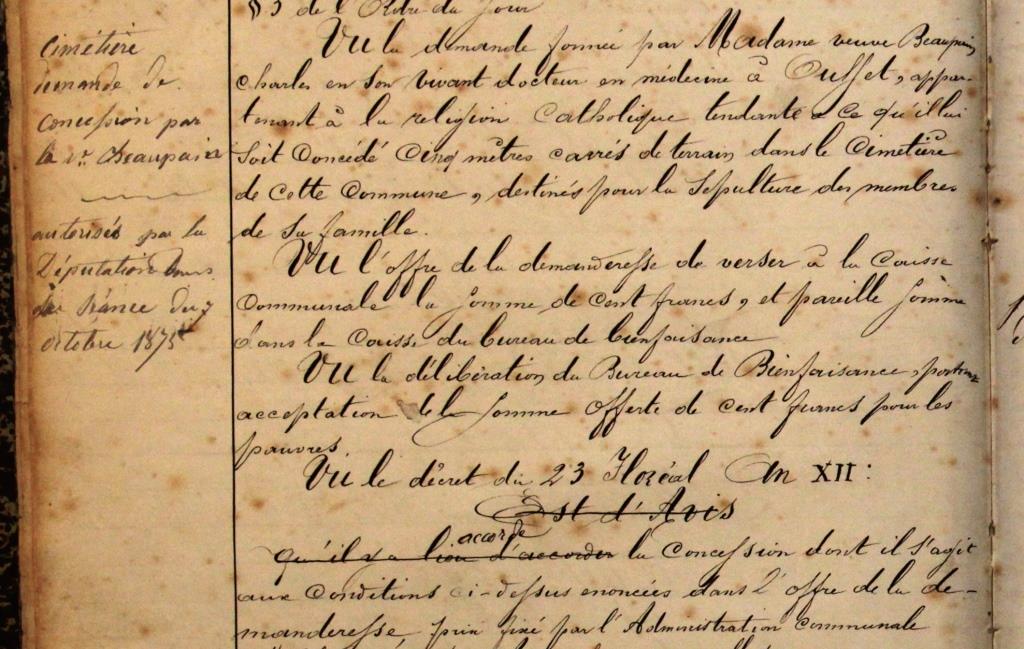 § 3 de l'Ordre du jour
Cimétière
demande de
concession par
la ve. Beaupain
autorisés par la
Députation dans
sa séance du 7
octobre 1875
Vu la demande formée par Madame veuve Beaupain,
Charles en son vivant docteur en médecine à Ouffet, appar-
tenant à la religion Catholique tendante a ce qu'il lui
soit Concédé Cinq mètres carrés de terrain dans le Cimetière
de cette Commune, destinés pour la Sépulture des membres
de sa famille.
Vu l'offre de la demanderesse de verser à la Caisse
Communale la somme de cent francs, et pareille somme
dans la Caisse du bureau de bienfaisance
Vu la délibération du Bureau de Bienfaisance, portant
acceptation de la somme offerte de cent francs pour les
pauvres.
Vu le décret du 23 Floréal An XII:
Est d'Avis
accorde
qu'il y a lieu d'accorder la Concession dont il s'agit
aux Conditions ci-dessus enoncées dans l'offre de la de-
manderesse, prix fixé par l'Administration communale